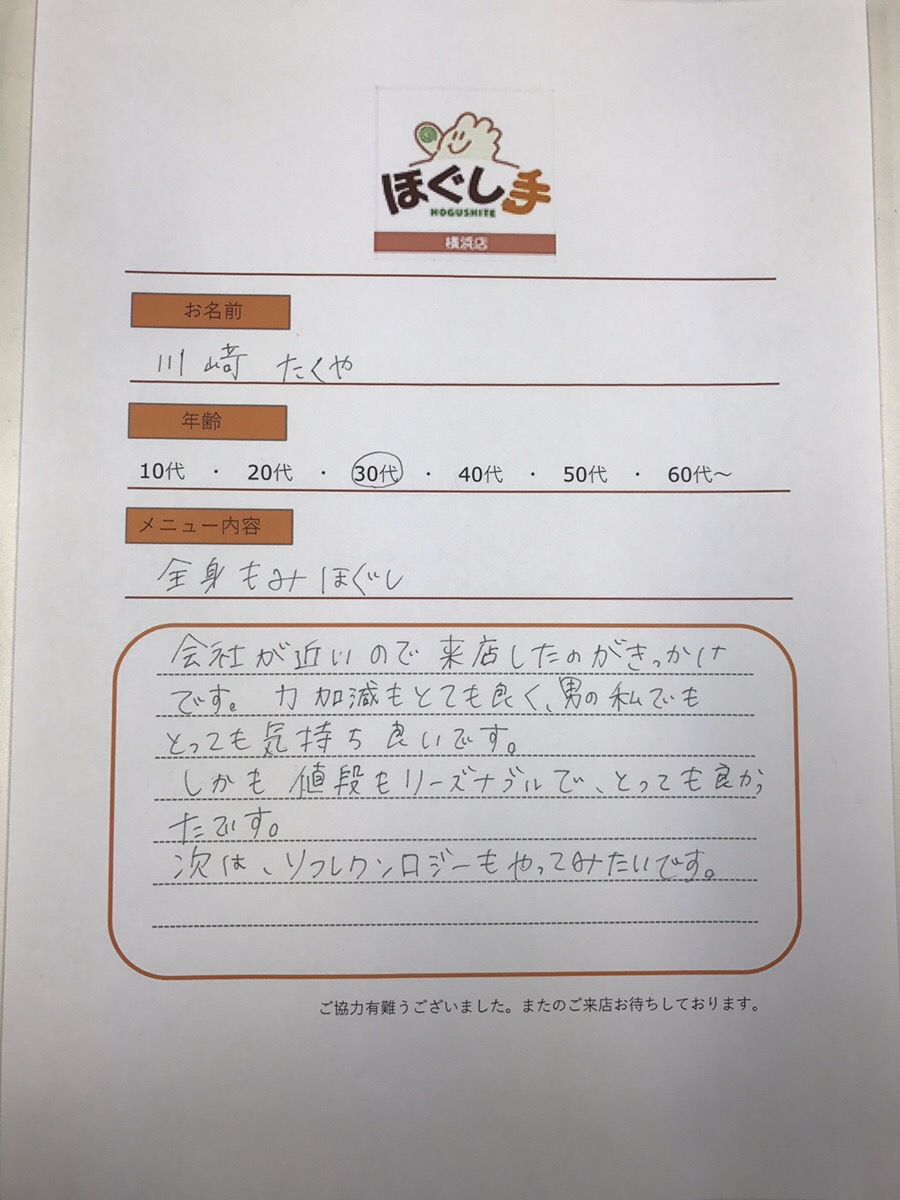 ほぐし手
HOGUSHITE
横浜店
お名前
川崎 たくや
年齢
10代 ・ 20代 ・ 30代 ・ 40代 ・ 50代 ・ 60代～
メニュー内容
全身もみほぐし
会社が近いので来店したのがきっかけ
です。力加減もとても良く、男の私でも
とっても気持ち良いです。
しかも値段もリーズナブルで、とっても良かっ
たです。
次は、リフレクソロジーもやってみたいです。
ご協力有難うございました。またのご来店お待ちしております。